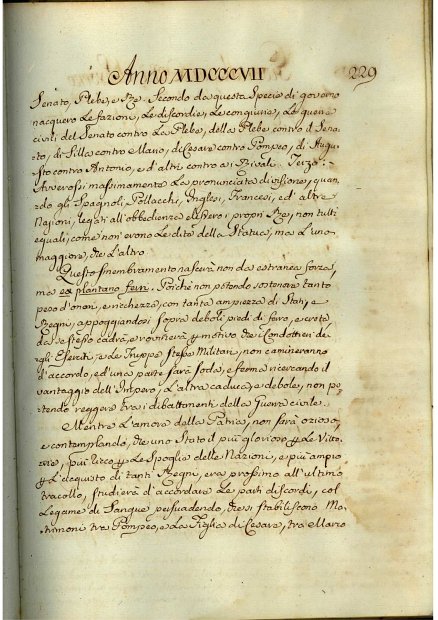 Anno MDCCCVII 229
Senato, Plebe, e Rè. Secondo da questa Specie di governo
nacquero Le fazioni, Le discordie, Le congiure, Le guerre
civili del Senato contro La Plebe, della Plebe contro il Sena-
to, di Silla contro Mario, di Cesare contro Pompeo, di Augu-
sto contro Antonio, e d'altri contro a i Rivali. Terzo:
Avverossi massimamente La pronunciata divisione, quan-
do gli Spagnoli, Pollacchi, Inglesi, Francesi, ed altre
Nazioni, legati all'obbedienza de loro propri Rè, non tutti
equali, come non erono Le dita della Statua, ma L'uno
maggiore, che L'altro.
Questo smembramento nascerà non da estranea forza,
ma
Perchè non potendo sostenere tanto
peso d'onori, e richezze, con tanta ampiezza di Stati, e
Regni, appoggiandosi sopra deboli piedi di ferro, e creta
da se stesso cadrà, e rovinerà p motivo che i Condottieri de-
gli Eserciti, e Le Truppe stesse Militari, non camineranno
d'accordo, ed una parte sarà soda, e ferma ricercando il
vantaggio dell'Impero, L'altra caduca, e debole, non po-
tendo reggere tra i dibattimenti della Guerra civile.
Mentre L'amore della Patria, non sarà ozioso,
e contemplando, che uno Stato il più glorioso p Le Vitto-
rie, più ricco p Le Spoglie delle Nazioni, e più ampio
p L'acquisto di tanti Regni, era prossimo all'ultimo
tracollo, studierà d'accordare Le parti discordi, col
Legame di Sangue persuadendo, che si stabiliscono Ma-
trimoni tra Pompeo, e La Figlia di Cesare, tra Mario